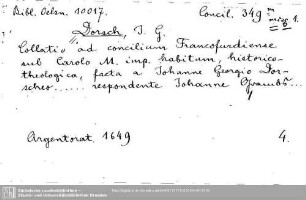 Bibl. Oelsn. 10017.
Concil. 349 m
misc. 1.
Dorsch, J. G.
Collatio ad concilium Francofurdiense
sub Carolo M. imp. habitum, historico-
theologica, facta a Johanne Georgio Dor-
scheo ...... respondente Johanne
Argentorat. 1649
4.
Sächsische Landesbibliothek -
Staats- und Universitätsbibliothek Dresden